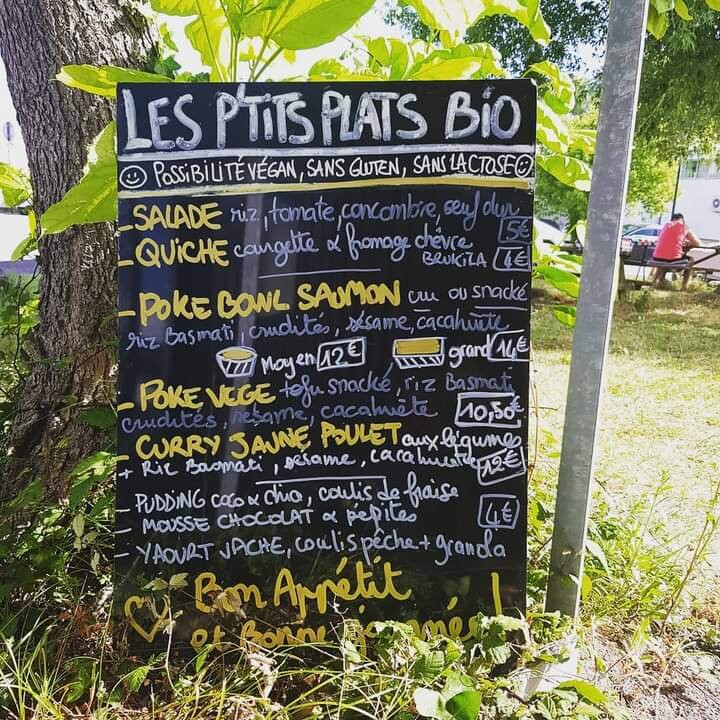 LES P'TITS PLATS BIO
POSSIBILITÉ VÉGAN, SANS GLUTEN, SANS LACTOSE
- SALADE riz, tomate, concombre, oeuf dur 5€
- QUICHE courgette & fromage chèvre
BRUKILA 4€
- POKE BOWL SAUMON cru ou snacké
riz Basmati, crudités, sésame, cacahuète
Moyen 12€ grand 14€
- POKE VEGE tofu snacké, riz Basmati
crudités, sesame, cacahuète 10,50€
- CURRY JAUNE POULET aux légumes
+ Riz Basmati, sésame, cacahuète 12€
- PUDDING COCO & chia, coulis de fraise
- MOUSSE CHOCOLAT & pépites 4€
- YAOURT VACHE, coulis pêche + granola
Bon Appétit
et Bonne journée !